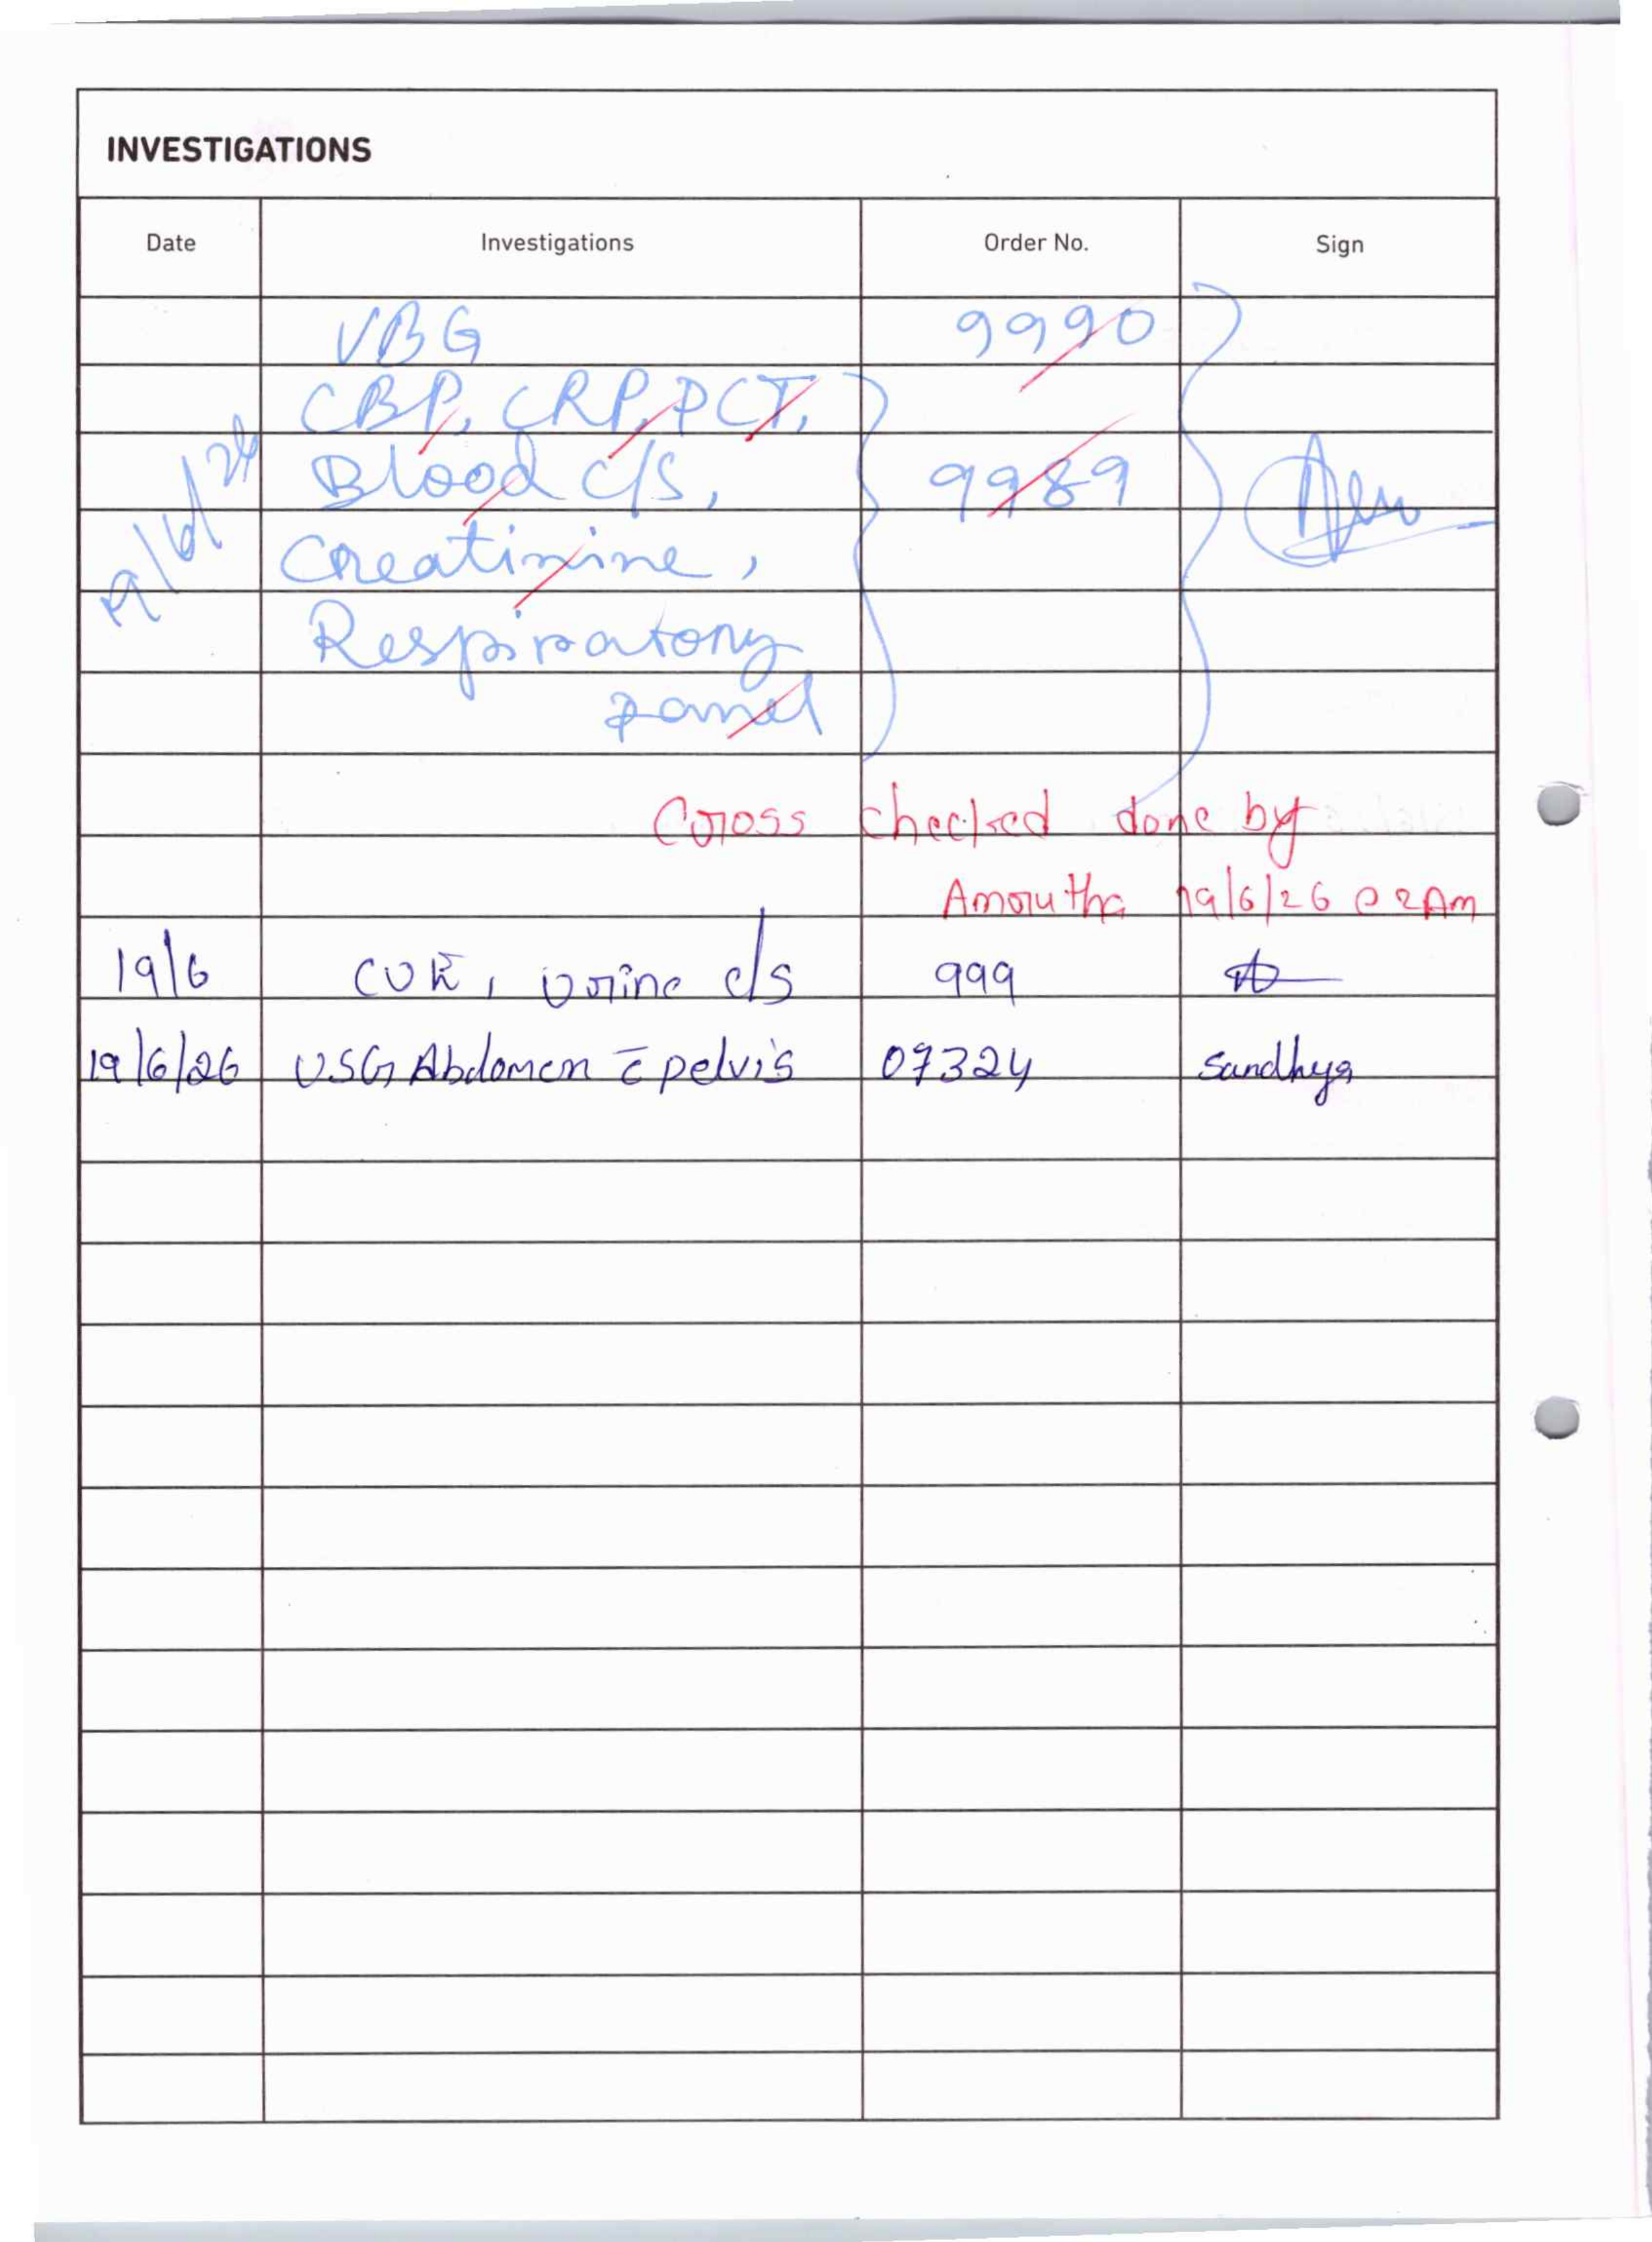 INVESTIGATIONS
Date Investigations Order No. Sign
VBG 9990
CBP, CRP, PCT,
Blood c/s, 9989
Creatinine,
Respiratory
panel
Cross checked done by
Amrutha 19/6/26 @ 2Am
19/6 CUE, Urine c/s 999
19/6/26 USG Abdomen c̄ pelvis 07324 Sandhya